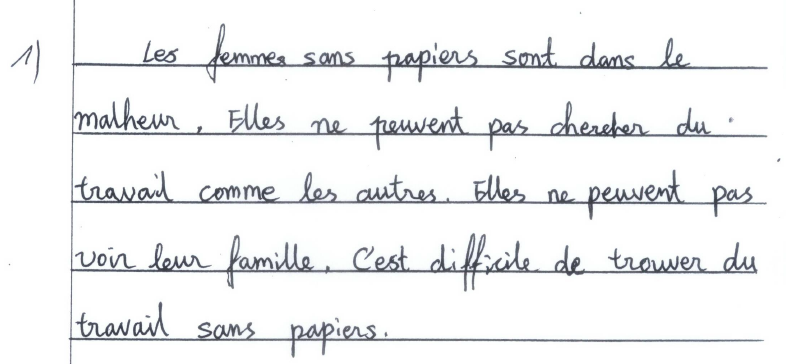 1) Les femmes sans papiers sont dans le
malheur. Elles ne peuvent pas chercher du
travail comme les autres. Elles ne peuvent pas
voir leur famille. C'est difficile de trouver du
travail sans papiers.